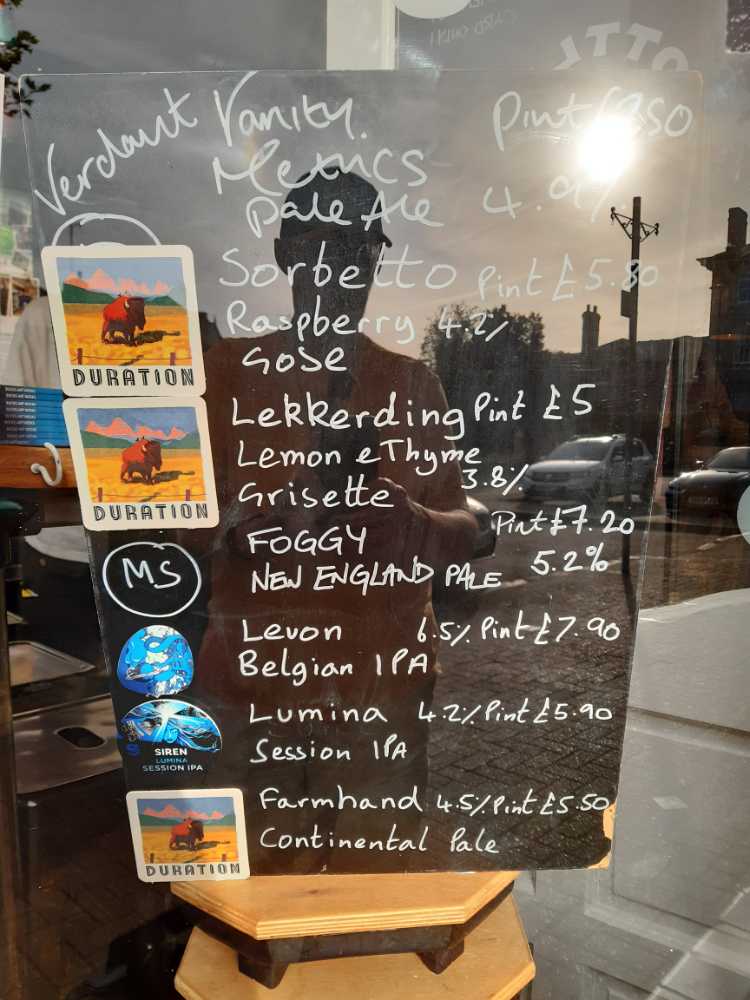 Verdant Vanity. Pint
Metrics
Pale Ale 4.9%
Sorbetto Pint £5.80
Raspberry 4.2%
GOSE
DURATION
Lekkerding Pint £5
Lemon e Thyme
3.8%
Grisette
DURATION
FOGGY Pint £7.20
NEW ENGLAND PALE 5.2%
MS
Levon 6.5% Pint £7.90
Belgian IPA
Lumina 4.2% Pint £5.90
Session IPA
SIREN
LUMINA
SESSION IPA
Farmhand 4.5% Pint £5.50
Continental Pale
DURATION